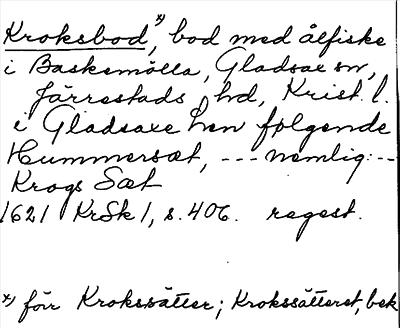 Kroksbod*), bod med ålfiske
i Baskemölla, Gladsax sn,
Järrestads hd, Krist. l.
i Gladsaxe hen følgende
Hummersæt, --- nemlig ---
Krogs Sæt
1621 KrSk 1, s. 406. regest.
*) för Kroksätter; Krokssätteret, bek